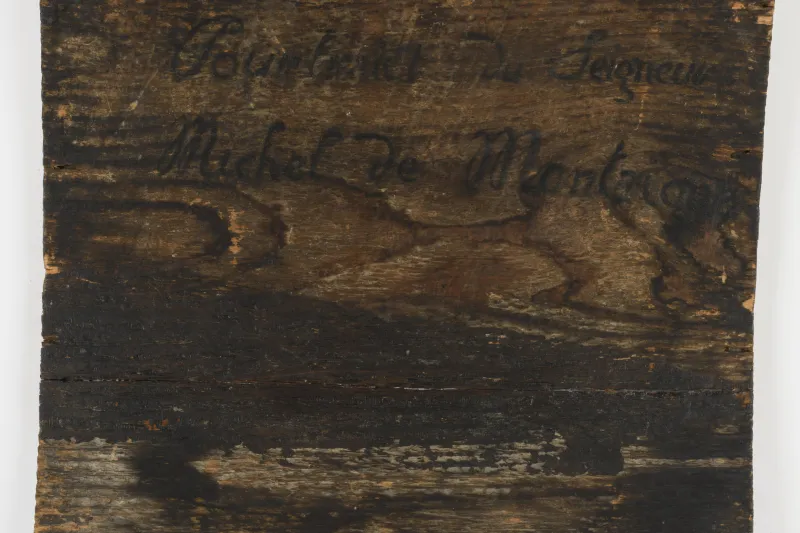 Pourtraict du Seigneur
Michel de Montaigne